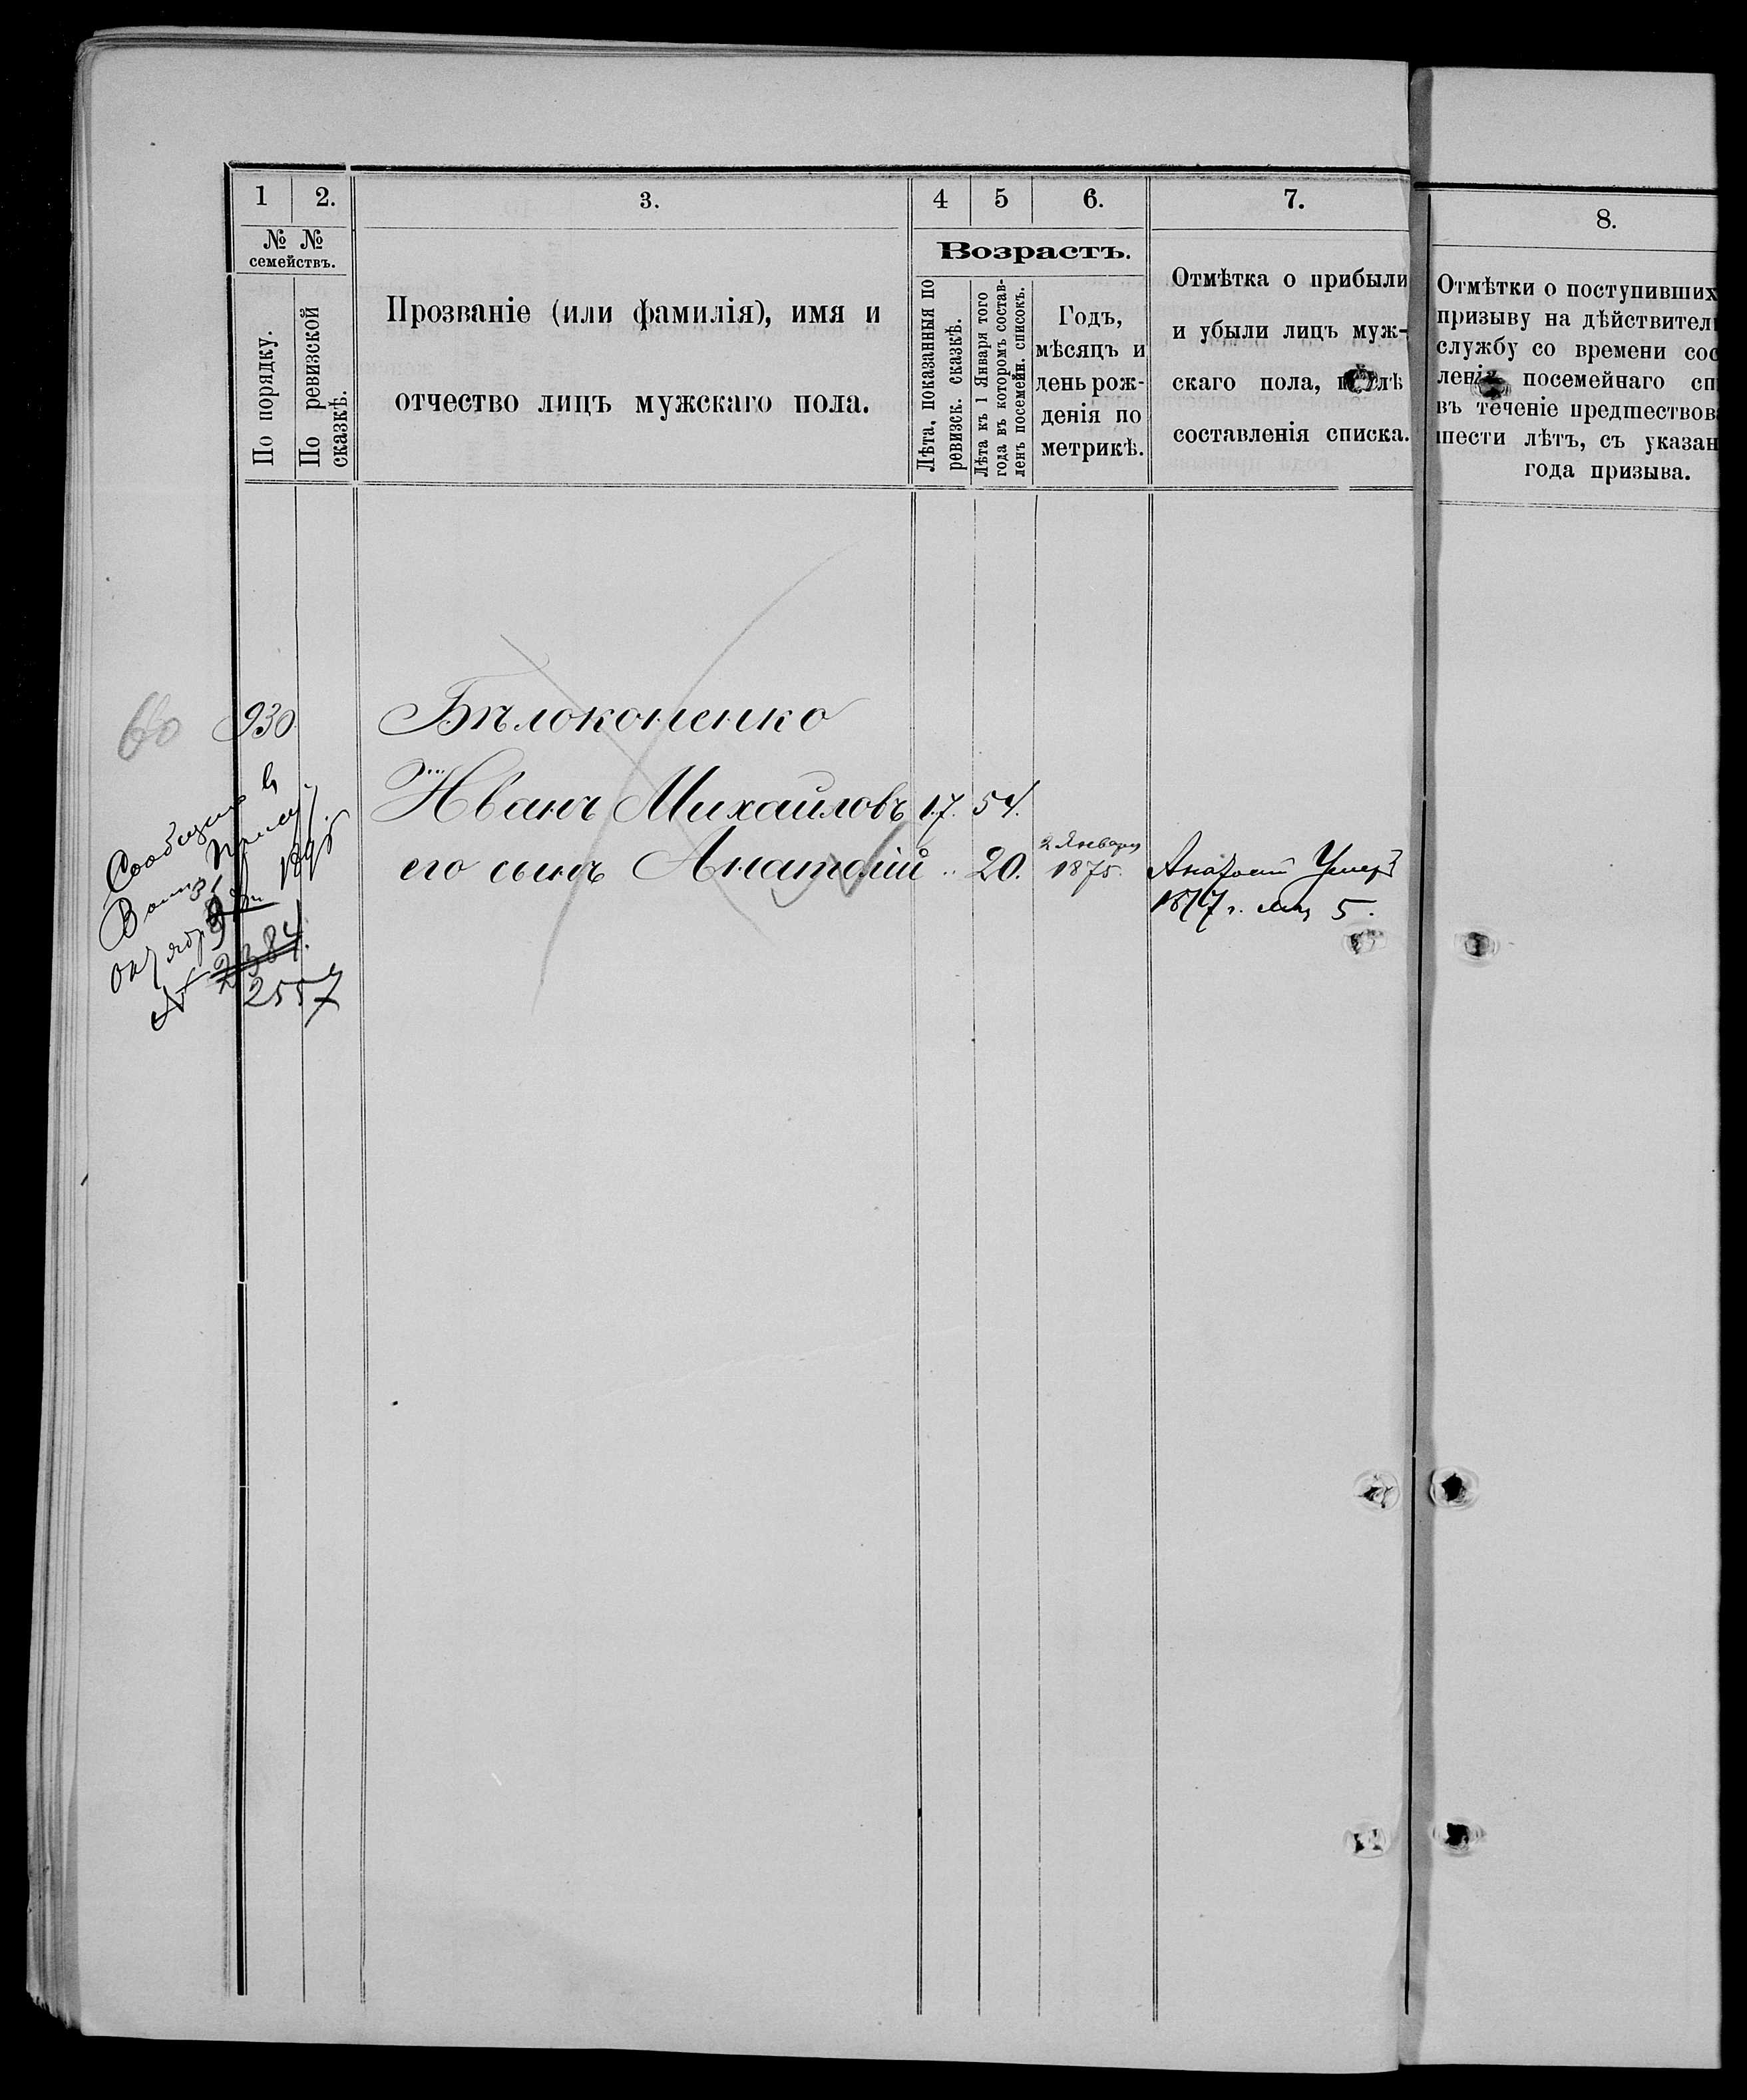 1 2. 3. 4 5 6. 7. 8.
№ № семействъ.
По порядку.
По ревизской сказкѣ.
Прозваніе (или фамилія), имя и
отчество лицъ мужскаго пола.
Возрастъ.
Лѣта, показанныя по
ревизск. сказкѣ.
Лѣта къ 1 Января того
года въ которомъ состав-
ленъ посемейн. списокъ.
Годъ,
мѣсяцъ и
день рож-
денія по
метрикѣ.
Отмѣтка о прибыли
и убыли лицъ муж-
скаго пола, п лѣ
составленія списка.
Отмѣтки о поступивших
призыву на дѣйствител
службу со времени сос
лені посемейнаго сп
въ теченіе предшествов
шести лѣтъ, съ указан
года призыва.
60 930. Бѣлоконенко
Иванъ Михайловъ 17. 54.
его сынъ Анатолій .. 20. 2 Января 1875. Анатолій Умеръ
1877 г. 5.
1895
№ 2384.
2557